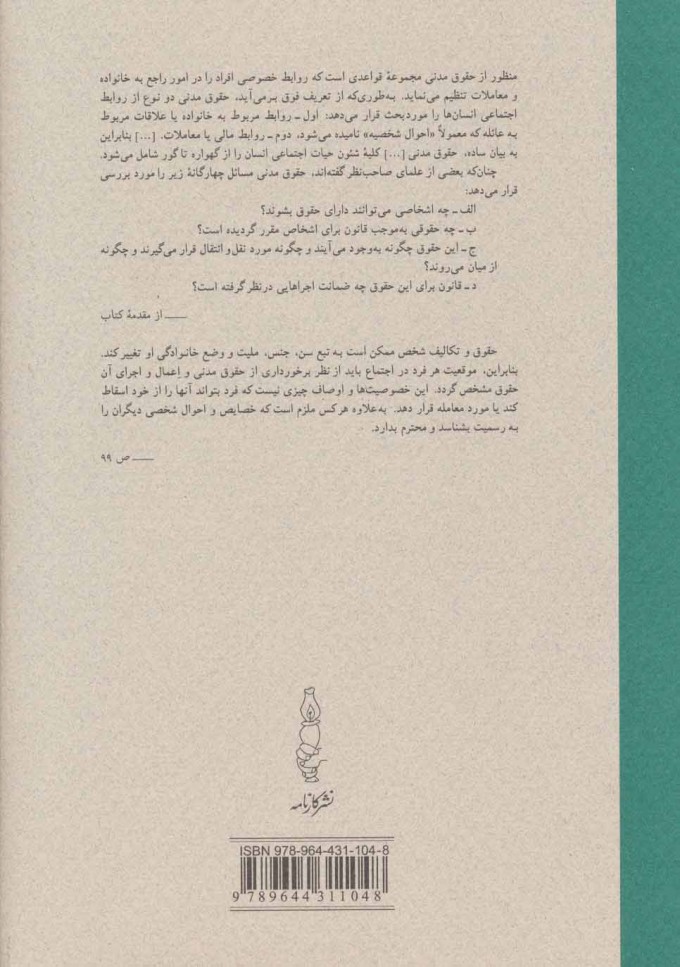 منظور از حقوق مدنی مجموعهٔ قواعدی است که روابط خصوصی افراد را در امور راجع به خانواده
و معاملات تنظیم می‌نماید. به‌طوری‌که از تعریف فوق برمی‌آید، حقوق مدنی دو نوع از روابط
اجتماعی انسان‌ها را مورد بحث قرار می‌دهد: اول ـ روابط مربوط به خانواده یا علاقات مربوط
به عائله که معمولاً «احوال شخصیه» نامیده می‌شود، دوم ـ روابط مالی یا معاملات. [...] بنابراین
به بیان ساده، حقوق مدنی [...] کلیهٔ شئون حیات اجتماعی انسان را از گهواره تا گور شامل می‌شود.
چنان‌که بعضی از علمای صاحب‌نظر گفته‌اند، حقوق مدنی مسائل چهارگانهٔ زیر را مورد بررسی
قرار می‌دهد:
الف ـ چه اشخاصی می‌توانند دارای حقوق بشوند؟
ب ـ چه حقوقی به‌موجب قانون برای اشخاص مقرر گردیده است؟
ج ـ این حقوق چگونه به‌وجود می‌آیند و چگونه مورد نقل و انتقال قرار می‌گیرند و چگونه
از میان می‌روند؟
د ـ قانون برای این حقوق چه ضمانت اجراهایی در نظر گرفته است؟
ـــــ از مقدمهٔ کتاب
حقوق و تکالیف شخص ممکن است به تبع سن، جنس، ملیت و وضع خانوادگی او تغییر کند.
بنابراین، موقعیت هر فرد در اجتماع باید از نظر برخورداری از حقوق مدنی و اِعمال و اجرای آن
حقوق مشخص گردد. این خصوصیت‌ها و اوصاف چیزی نیست که فرد بتواند آنها را از خود اسقاط
کند یا مورد معامله قرار دهد. به‌علاوه هر کس ملزم است که خصایص و احوال شخصی دیگران را
به رسمیت بشناسد و محترم بدارد.
ـــــ ص ۹۹
نشر کارنامه
ISBN 978-964-431-104-8
9 789644 311048